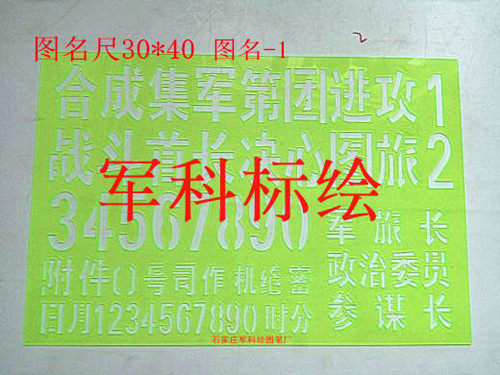 图名尺30*40 图名-1
合成集军第团进攻1
战斗首长决心图旅2
军科标绘
34567890 军旅长
附件()号司作机绝密 政治委员
日月1234567890时分 参谋长
石家庄军科绘图笔厂